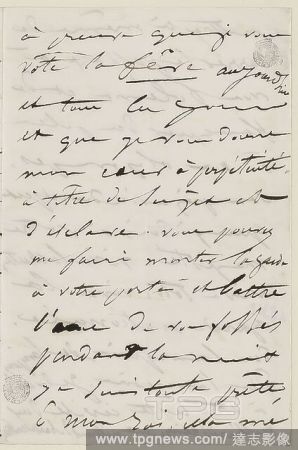 à preuve que je vous
vote la fève aujourd'hui
et tous les jours
et que je vous donne
mon cœur à perpétuité
à titre de sujet et
d'esclave. vous pouvez
me faire monter la garde
à votre porte et battre
l'eau de vos fossés
pendant la nuit
je suis toute prête
ô mon roi, cela me
www.tpgnews.com/達志影像